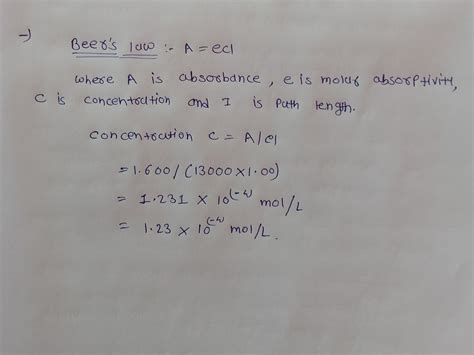 →)
Beer's law :- A = ecl
where A is absorbance, e is molar absorptivity,
c is concentration and I is path length.
concentration c = A/el
= 1.600/(13000×1.00)
= 1.231 × 10^(-4) mol/L
= 1.23 × 10^(-4) mol/L.